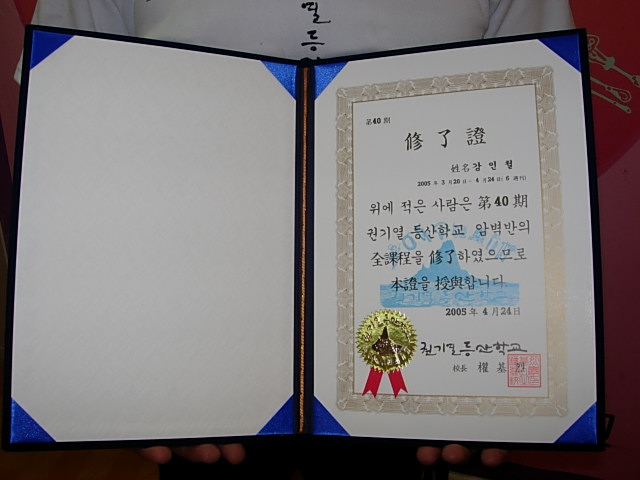 필등
第40期
修了證
姓名 강인철
2005年 3月20日~4月24日(6週刊)
위에 적은 사람은 第40期
권기열 등산학교 암벽반의
全課程을 修了하였으므로
本證을 授與합니다.
2005年 4月24日
권기열등산학교
校長 權基烈